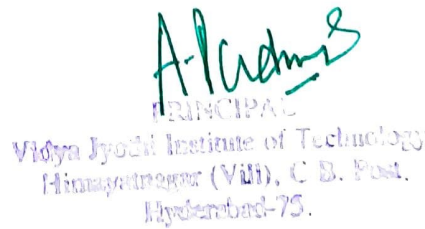 PRINCIPAL
Vidya Jyothi Institute of Technology
Himayatnagar (Vill), C.B. Post.
Hyderabad-75.